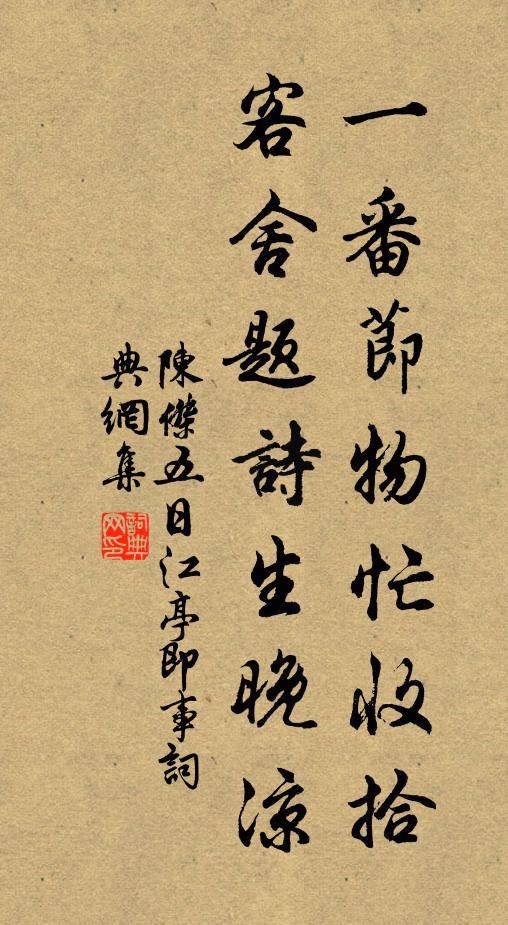 一番節物忙收拾
客舍題詩生晚涼
陳傑五日江亭即事詞
典網集
詞典网印